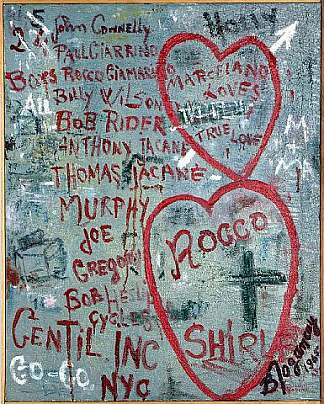 John Connelly
PAUL CiARRiNO
BoYS ROCCO GiAMARiNO
All BiLLY WiLSON
BOB RiDER
ANTHONY TACANE
THOMAS TACANE
MURPHY
JOE
GREGORY
BOB
CYCLES
GENTiL INC
GO-GO
NYC
MARCELANO
LOVES
TRUE LOVE
M
M
ROCCO
SHiRL